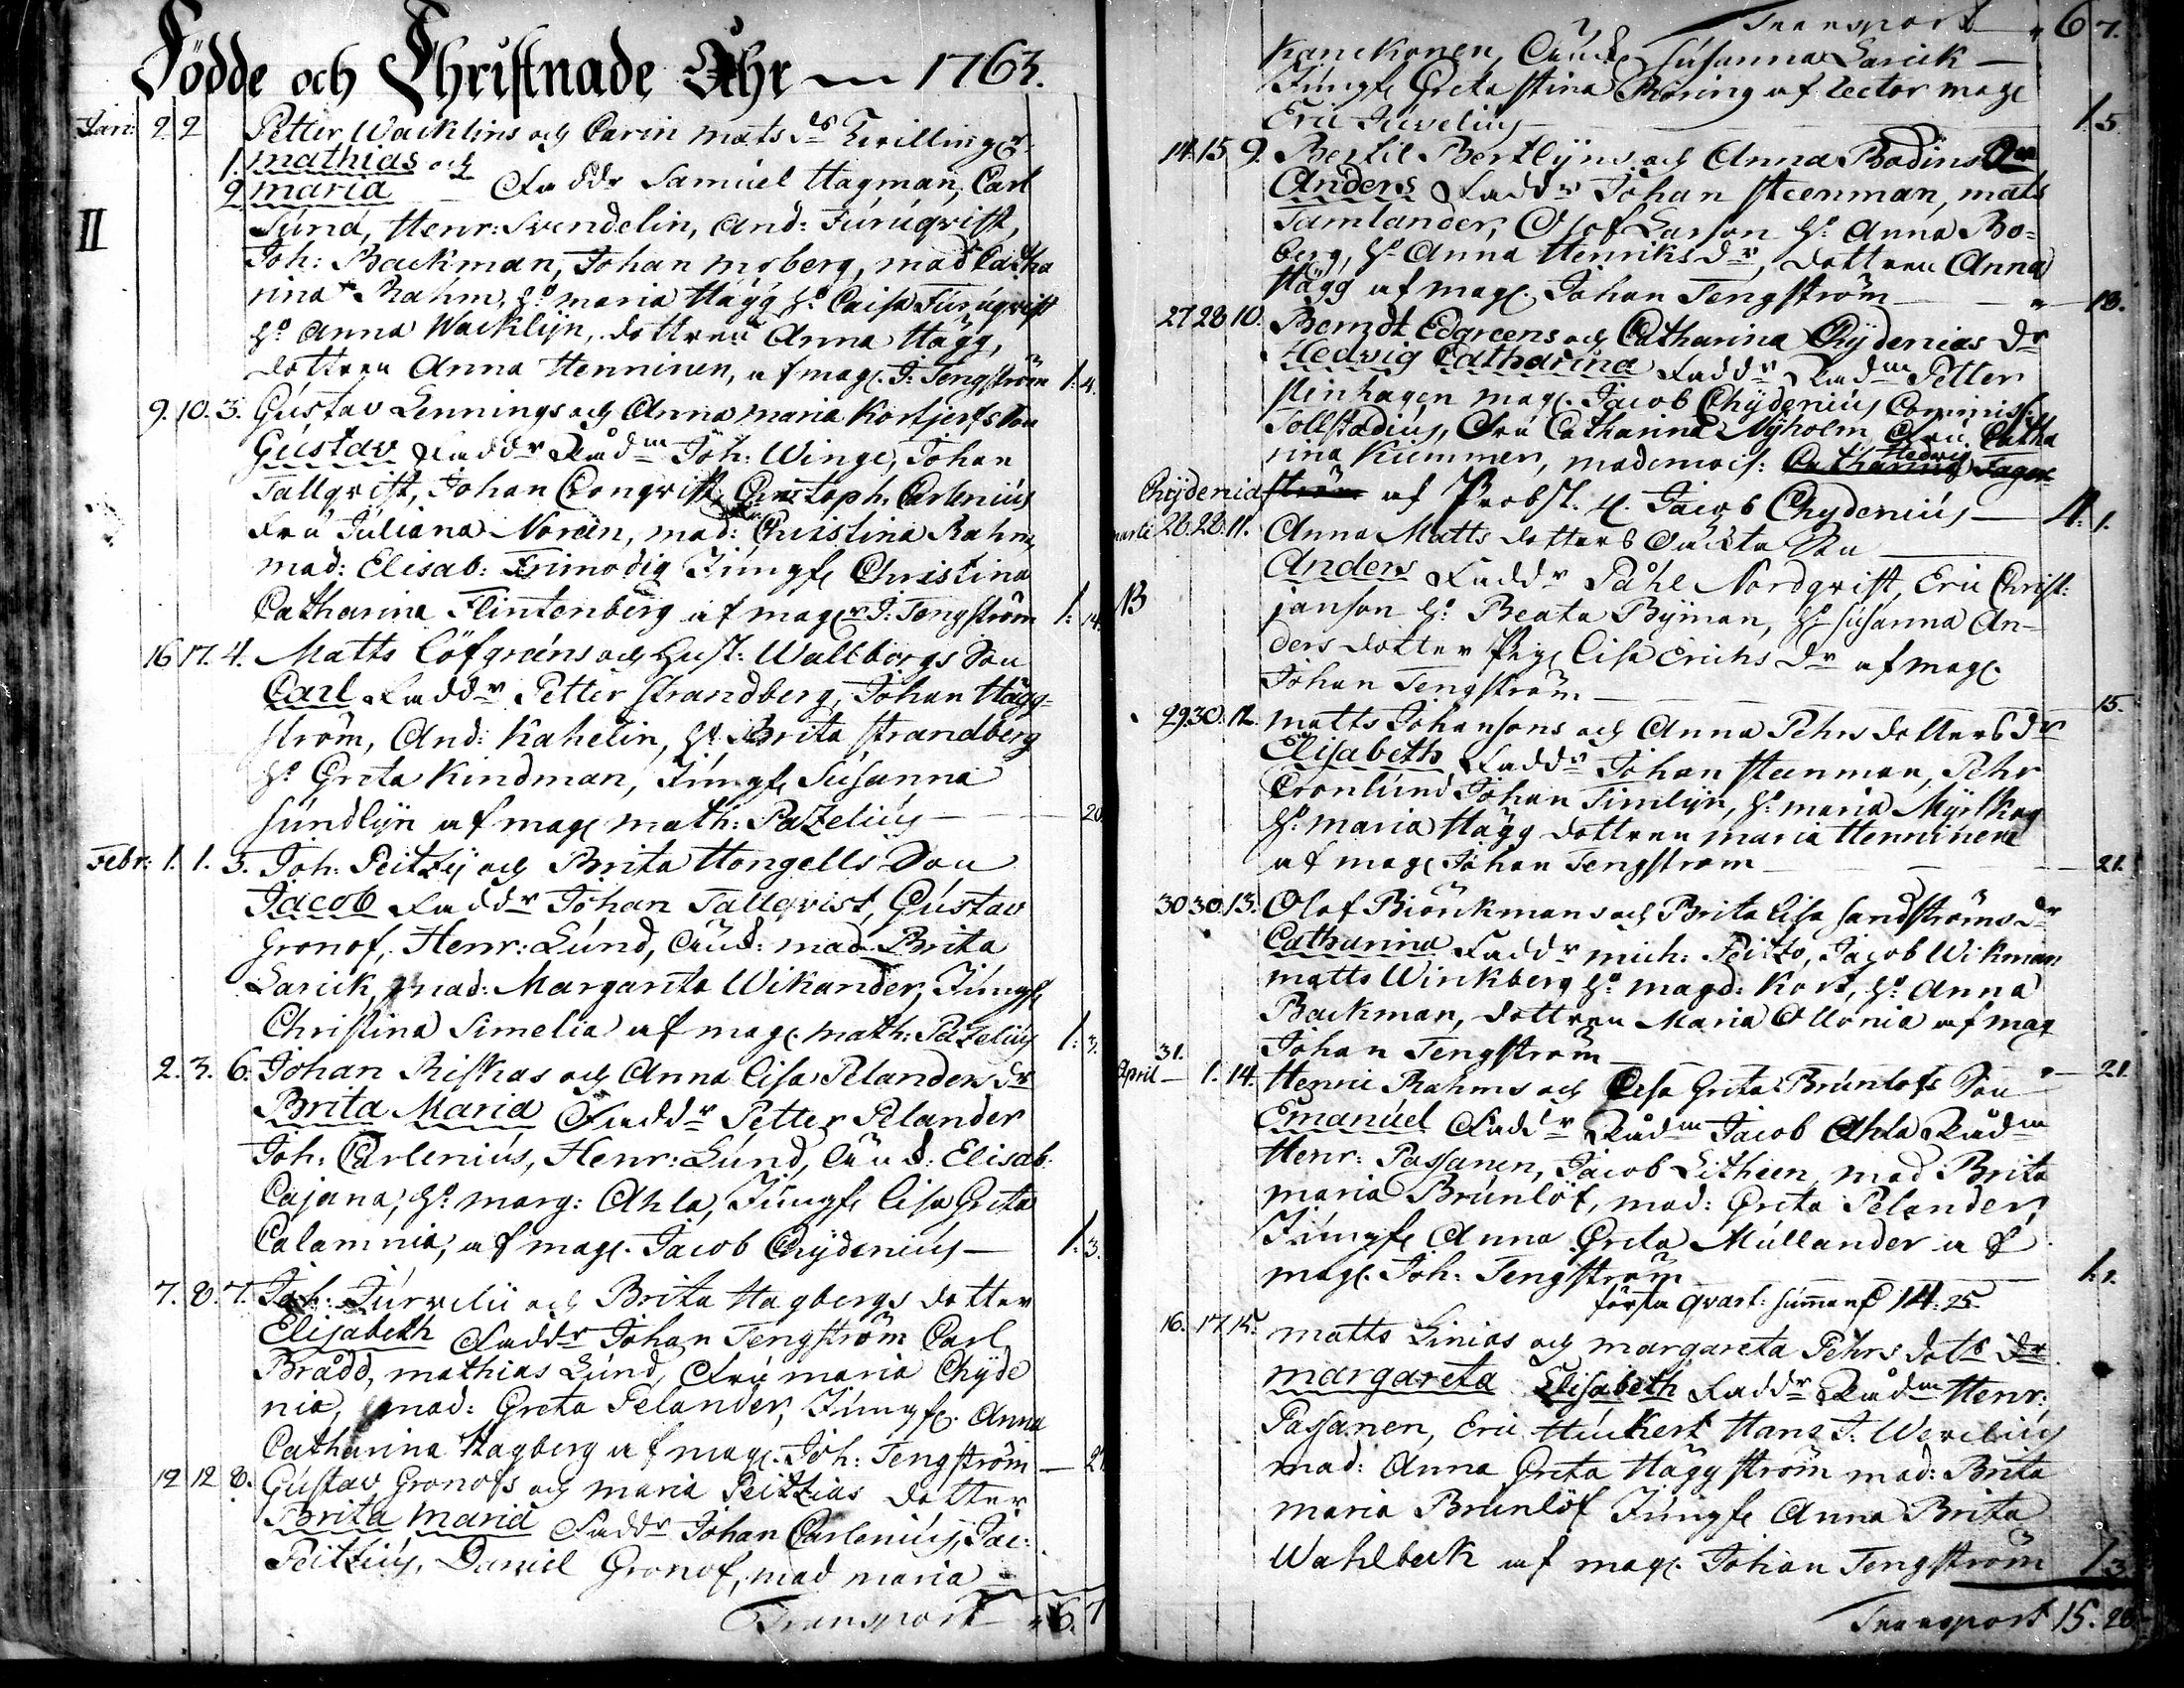 Födde och Christnade Åhr 1763.
Jan: 2 2 Petter Wacklins och Carin Mats ds Twillingar
1. Mathias och
2. Maria Faddr Samuel Hagman, Carl
II
Sund, Henr: Svendelin, And: Furuqvist,
Joh: Backman, Johan Moberg, mad Catha
rina Rahm, H: Maria Hägg H: Caisa Furuqvist
H: Anna Wacklijn, dottren Anna Hägg,
dottren Anna Henninen, af mag. J: Tengström 1: 4.
9. 10. 3. Gustav Lennings och Anna Maria Son
Gustav Faddr Rådm Joh: Winge, Johan
Tallqvist, Johan Cronqvist, Christoph. Carlenius
Fru Juliana Norén, mad: Christina Rahm,
mad: Elisab: Frimodig Jungf Christina
Catharina Flintenberg af mag J: Tengström 1: 14.
16 17. 4. Matts Löfgréns och Hust: Wallborgs Son
Carl Faddr Petter Strandberg, Johan Hägg=
ström, And: Kahelin, H: Brita Strandberg
H: Greta Kindman, Jungf Susanna
Sundlijn af mag Math: Pazelius 20.
Febr: 1. 1. 5. Joh: Peitzij och Brita Hongells Son
Jacob Faddr Johan Tallqvist, Gustav
Gronof, Henr: Lund, mad Brita
Larick, mad: Margareta Wikander, Jungf
Christina Simelia af mag. Math: Pazelius 1: 3.
2. 3. 6. Johan Riskas och Anna Lisa Pelanders dr
Brita Maria Faddr Petter Pelander
Joh: Carlenius, Henr: Lund, Elisab:
Cajana, H: Marg: Ahla, Jungf Lisa Greta
Calamnia, af mag. Jacob Chydenius 1: 3.
7. 8. 7. Joh: Jurvelii och Brita Hagbergs dotter
Elisabeth Faddr Johan Tengström Carl
Brådd, Mathias Lund, Fru Maria Chyde
nia, mad: Greta Pelander, Jungf. Anna
Catharina Hagberg af mag. Joh: Tengström
12 12 8. Gustav Gronofs och Maria Peitzias dotter
Brita Maria Faddr Johan Carlenius, Jac:
Peitzius, Daniel Gronof, mad Maria
Transport 6. 7
Transport 6 7.
Kanckonen, Susanna Larick
Jungf Greta Stina Roring af Lector mag
Eric Juvelius 1. 5.
14. 15 9. Bertil Bertlijns och Anna Bodins Dr
Anders Faddr Johan Steenman, Mats
Tamlander, Olof Larson H: Anna Bo=
berg, H: Anna Henriksdr, dottren Anna
Hägg af mag. Johan Tengström 13.
27 28 10. Berndt Edgreens och Catharina Chydenias Dr
Hedvig Catharina Faddr Rådm Petter
Steinhagen mag. Jacob Chydenius Commiss:
Tollstadius, Fru Catharina Nyholm Fru Catha
rina Kummer, mademois: Hedvig
Chydenia af Probst. H. Jacob Chydenius 4: 1.
Marti 26. 28. 11. Anna Matts dotters oäckta Son
Anders Faddr Påhl Nordqvist, Eric Christ:
NB janson H: Beata Byman, H: Susanna An-
ders dotter Pig Lisa Erichs Dr af mag.
Johan Tengström 15.
29. 30. 12. Matts Johansons och Anna Pehrs dotters dr
Elisabeth Faddr Johan Steenman, Pehr
Cronlund Johan Timlijn, H: Maria Myrskog
H: Maria Hägg dottren Maria Henninen
af mag Johan Tengström 21.
30 30. 13. Olof Biörkmans och Brita Lisa Sandströms dr
Catharina Faddr Mich: Peitzo, Jacob Wikman
Matts Winkberg H: Magd: Kort, H: Anna
Backman, dottren Maria Ollonia af mag
Johan Tengström 21.
31.
April 1. 14. Henric Rahms och Lisa Greta Brunlöfs Son
Emanuel Faddr Rådm Jacob Ahla Rådm
Henr: Passanen, Jacob Litheen, mad Brita
Maria Brunlöf, mad: Greta Pelander,
Jungf Anna Greta Mullander af
mag. Joh: Tengström
första qvart: summan 14: 25
16. 17. 15. Matts Linias och Margareta Pehrs dots Dr
Margareta Elisabeth Faddr Rådm Henr:
Passanen, Eric Huckert Hans J: Werelius
mad: Anna Greta Häggström mad: Brita
Maria Brunlöf Jungf Anna Brita
Wahlbeck af mag. Johan Tengström 1. 3
Transport 15. 28